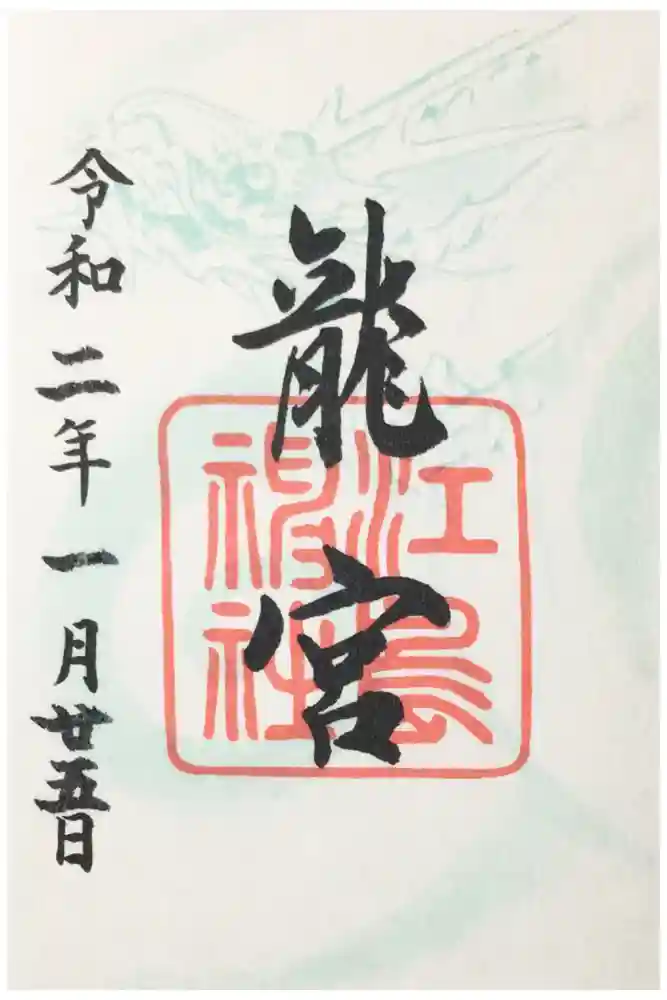 龍宮
江島
神社
令和二年一月廿五日